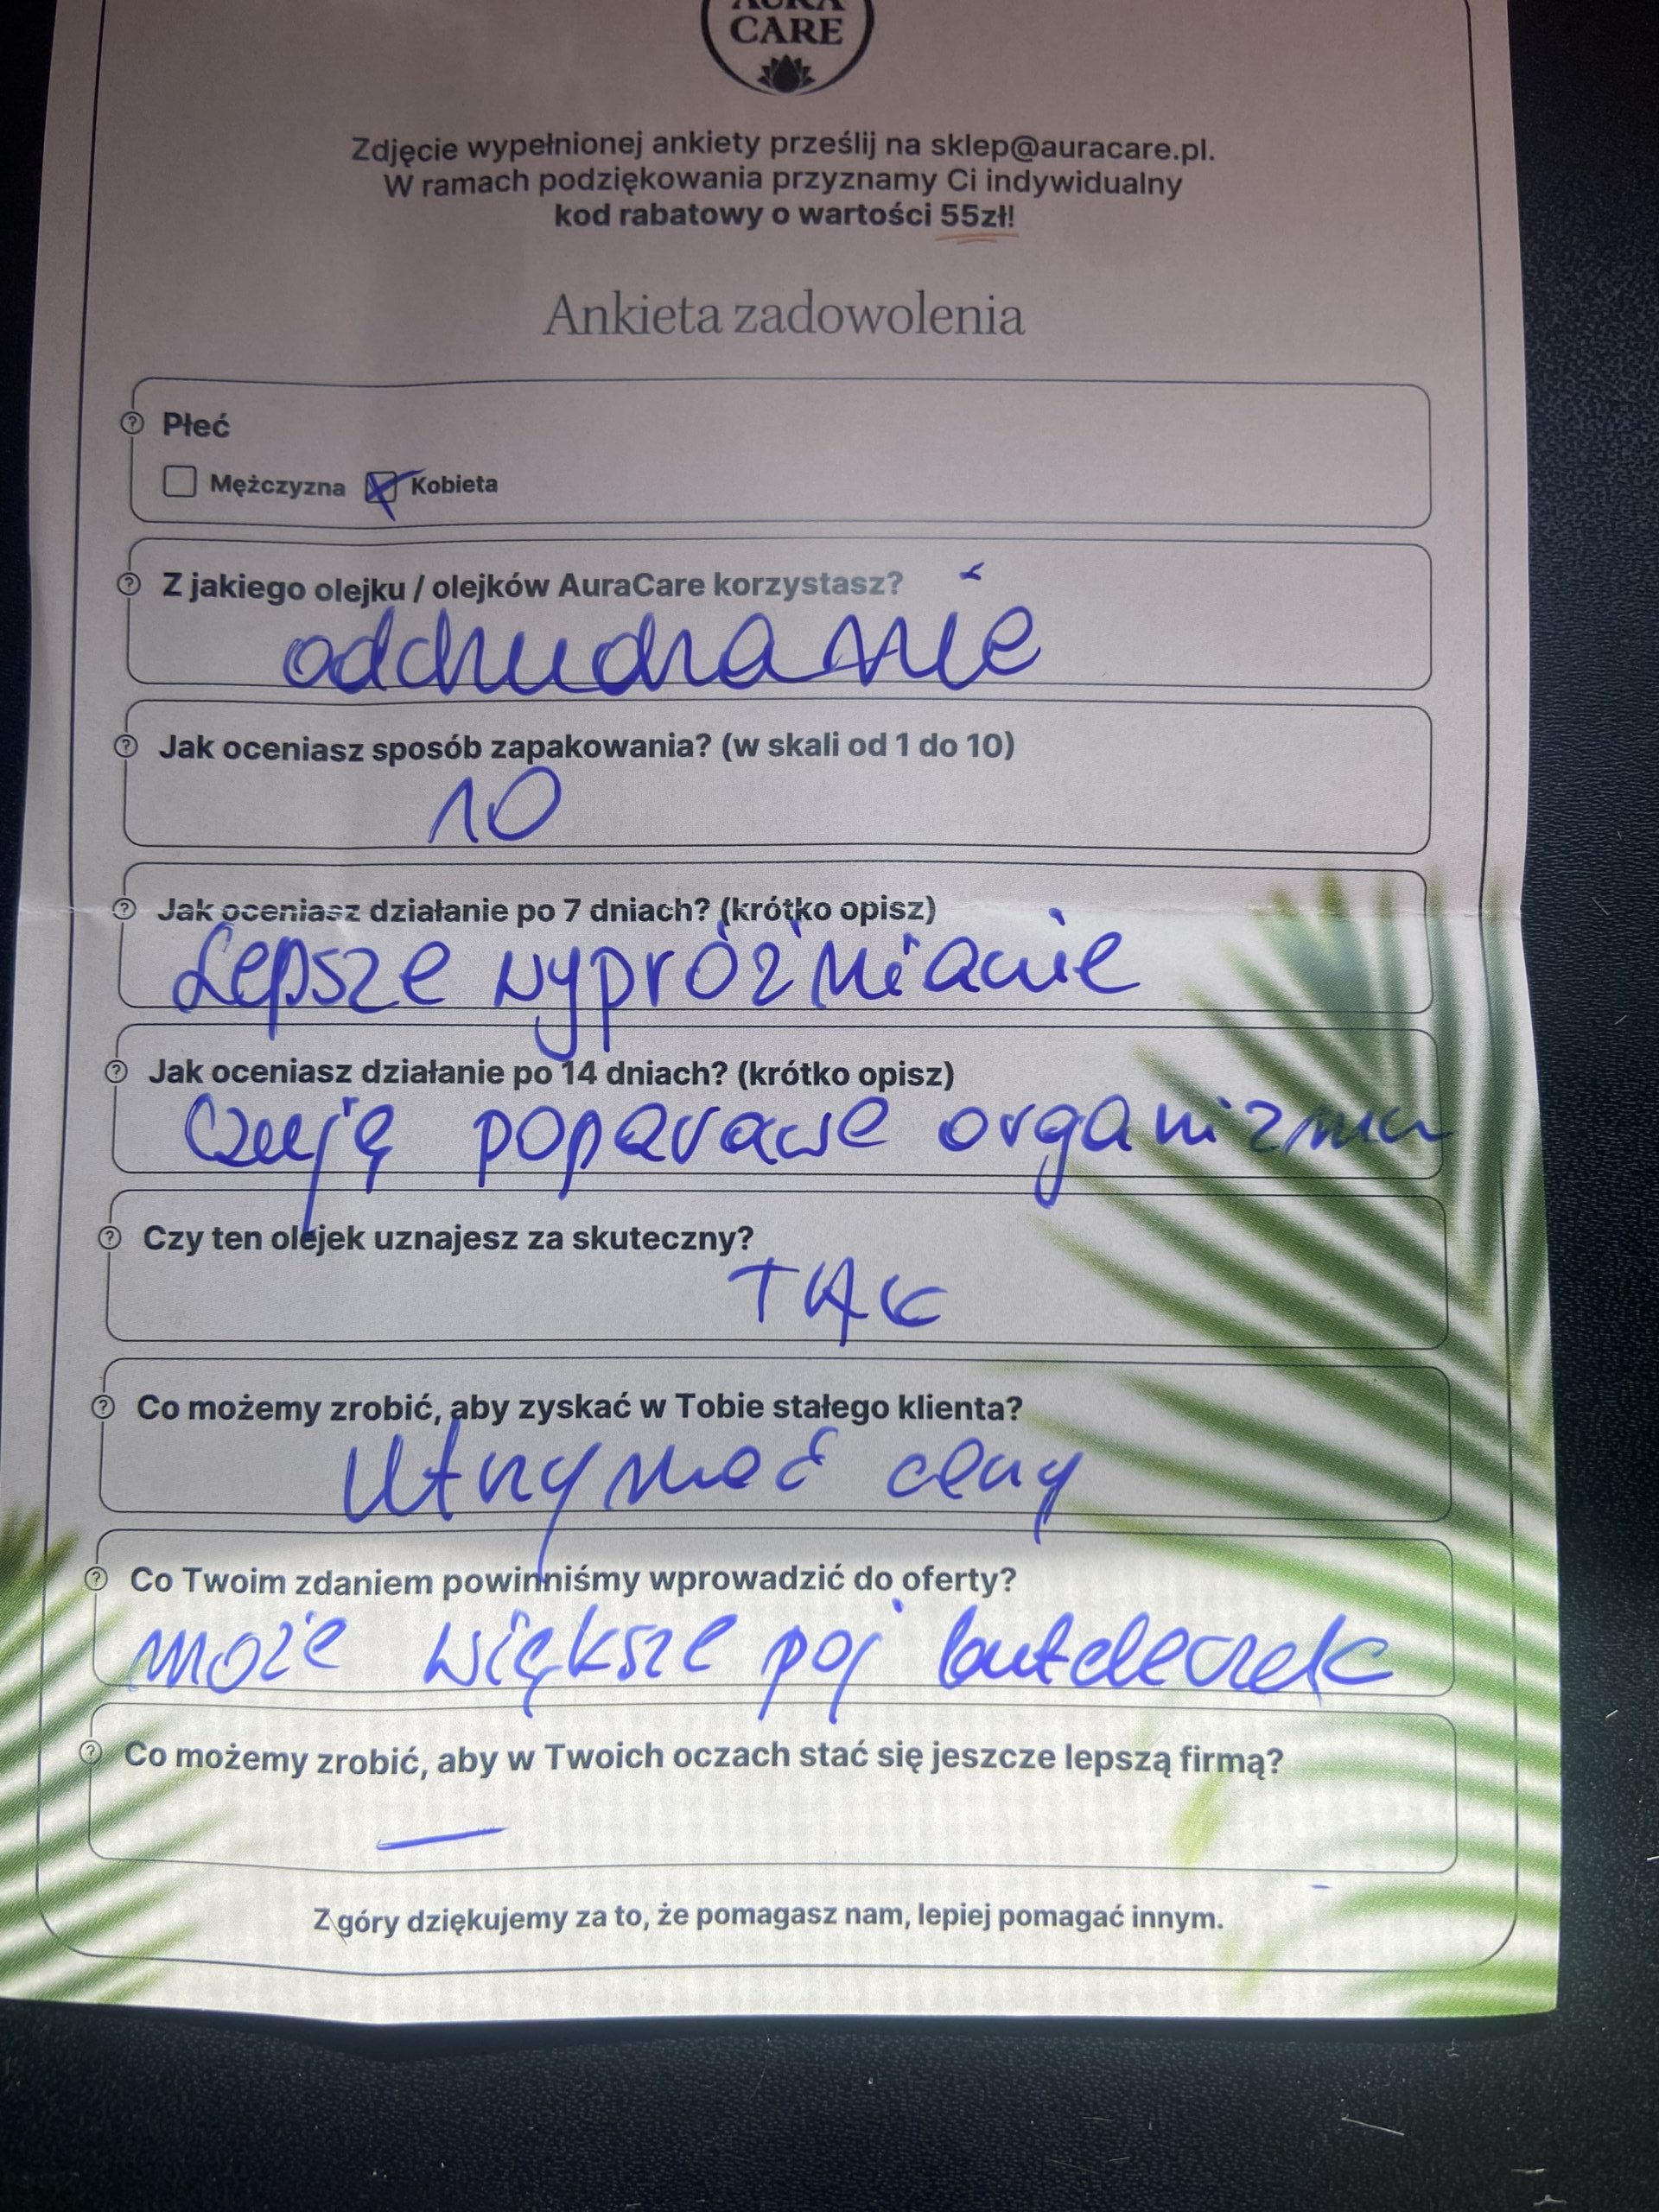 AURA
CARE
Zdjęcie wypełnionej ankiety prześlij na sklep@auracare.pl.
W ramach podziękowania przyznamy Ci indywidualny
kod rabatowy o wartości 55zł!
Ankieta zadowolenia
Płeć
Mężczyzna Kobieta
Z jakiego olejku / olejków AuraCare korzystasz?
odchudzanie
Jak oceniasz sposób zapakowania? (w skali od 1 do 10)
10
Jak oceniasz działanie po 7 dniach? (krótko opisz)
Lepsze wypróżnianie
Jak oceniasz działanie po 14 dniach? (krótko opisz)
Czuję poparawe organizmu
Czy ten olejek uznajesz za skuteczny?
TAK
Co możemy zrobić, aby zyskać w Tobie stałego klienta?
Utrzymać ceny
Co Twoim zdaniem powinniśmy wprowadzić do oferty?
może większe poj buteleczek
Co możemy zrobić, aby w Twoich oczach stać się jeszcze lepszą firmą?
—
Z góry dziękujemy za to, że pomagasz nam, lepiej pomagać innym.